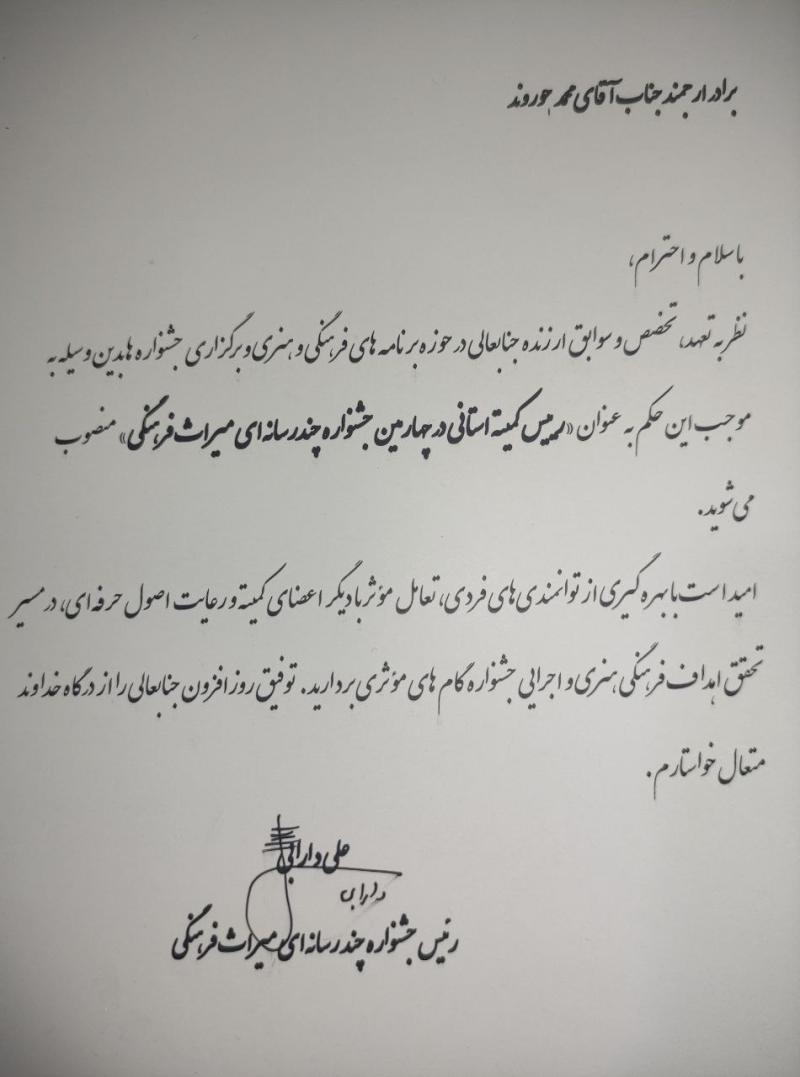 برادر ارجمند جناب آقای محمد جوروند
با سلام و احترام،
نظر به تعهد، تخصص و سوابق ارزنده جنابعالی در حوزه برنامه های فرهنگی و هنری و برگزاری جشنواره ها بدین وسیله به
موجب این حکم به عنوان «رییس کمیته استانی در چهارمین جشنواره چند رسانه ای میراث فرهنگی» منصوب
می شوید.
امید است با بهره گیری از توانمندی های فردی، تعامل مؤثر با دیگر اعضای کمیته و رعایت اصول حرفه ای، در مسیر
تحقق اهداف فرهنگی هنری و اجرایی جشنواره گام های مؤثری بردارید. توفیق روز افزون جنابعالی را از درگاه خداوند
متعال خواستارم.
علی دارابی
دارابی
رئیس جشنواره چند رسانه ای میراث فرهنگی